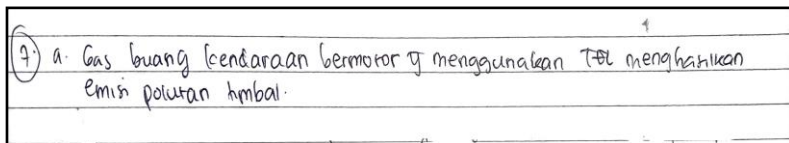 7. a. Gas buang kendaraan bermotor yg menggunakan TEL menghasilkan
emisi polutan timbal.